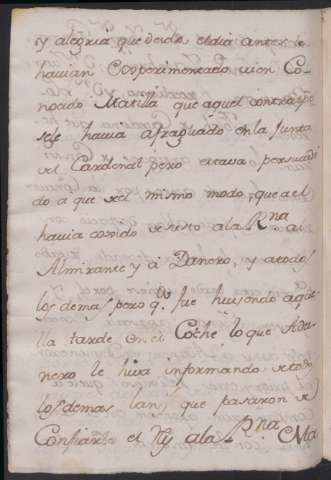 y alegria que desde el dia antes se
havian Experimentado vien Co-
nocido Matilla que aquel contrape
sele havia afraguado en la Junta
del Cardenal pero estava persuadi
do a que del mismo modo, que a el
havia cogido de resto a la Rna al
Almirante y à Danero, y a todos
los demas pero q.do fue huiendo aque
lla tarde en el Coche lo que Ada-
nero le hiva informando de todo
los demas lanzes que pasaron de
el Rey a la Rna Ma